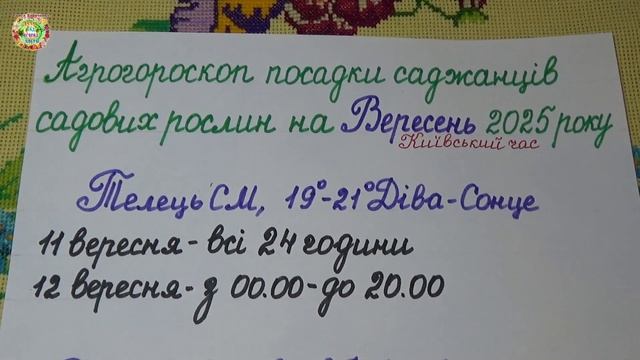 Агрогороскоп посадки саджанців
садових рослин на Вересень 2025 року
Київський час
Телець СМ, 19°-21° Діва-Сонце
11 вересня - всі 24 години
12 вересня - з 00.00 - до 20.00